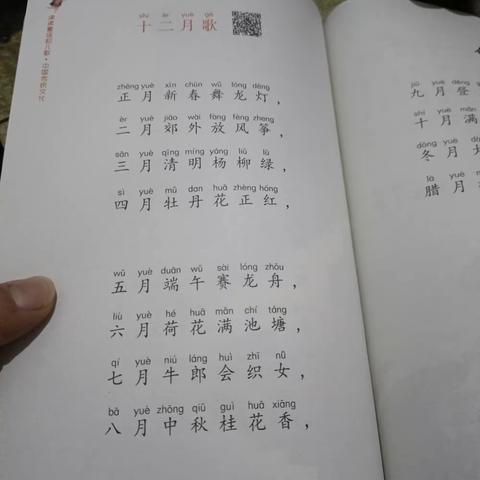 shí èr yuè gē
十二月歌
zhēng yuè xīn chūn wǔ lóng dēng
正月新春舞龙灯，
èr yuè jiāo wài fàng fēng zheng
二月郊外放风筝，
sān yuè qīng míng yáng liǔ lǜ
三月清明杨柳绿，
sì yuè mǔ dan huā zhèng hóng
四月牡丹花正红，
wǔ yuè duān wǔ sài lóng zhōu
五月端午赛龙舟，
liù yuè hé huā mǎn chí táng
六月荷花满池塘，
qī yuè niú láng huì zhī nǚ
七月牛郎会织女，
bā yuè zhōng qiū guì huā xiāng
八月中秋桂花香，
诵读童谣和儿歌·中国传统文化
jiǔ yuè dēng
九月登
shí yuè mǎn
十月满
dōng yuè
冬月
là yuè
腊月